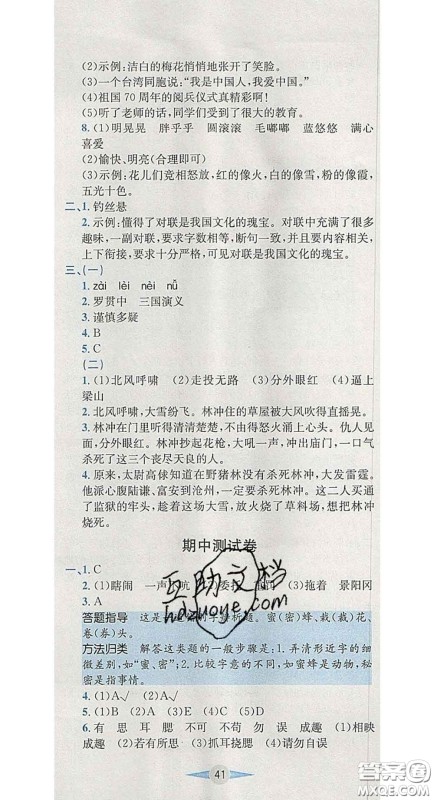 (2)示例:洁白的梅花悄悄地张开了笑脸。
(3)一个台湾同胞说:“我是中国人,我爱中国。”
(4)祖国 70 周年的阅兵仪式真精彩啊!
(5)听了老师的话,同学们受到了很大的教育。
8. (1)明晃晃 胖乎乎 圆滚滚 毛嘟嘟 蓝悠悠 满心
喜爱
(2)愉快、明亮(合理即可)
(3)示例:花儿们竞相怒放,红的像火,白的像雪,粉的像霞,
五光十色。
二、1. 钓丝悬
2. 示例:懂得了对联是我国文化的瑰宝。对联中充满了很多
趣味,一副对联,要求字数相等,节奏相应,意思相互衔接,
上下衔接,要求十分严格,可见对联是我国文化的瑰宝。
三、(一)
1. zài lèi nèi nǚ
2. 罗贯中 三国演义
3. 谨慎多疑
4. B
5. C
(二)
1. (1)北风呼啸 (2)走投无路 (3)分外眼红 (4)逼上
梁山
2. 北风呼啸,大雪纷飞。林冲住的草屋被大风吹得直摇晃。
3. 林冲在门里听得清清楚楚,不由得怒火涌上心头。真是仇
人相见,分外眼红。林冲抄起花枪,冲出庙门,一口气
杀死了这三个丧尽天良的人。
4. 原来,太尉高俅知道在野猪林没有杀死林冲,大发雷霆。
他派心腹陆谦、富安到沧州杀死林冲。他们用金钱买通了
监狱的牢头,趁着这场大雪,放火烧了草料场,想把林冲
烧死。
期中测试卷
一、1. C
2. (1)瞎闹 一声不吭 (2)委托 (3)拖着 景阳冈
3. A
答题指导 这是 析题。蜜(密)蜂、栽(裁)花、
卷(券)头。
方法归类 解答这类题的一般步骤是:1. 弄清形近字的细
微差别,如“蜜、密”;2. 比较字意的不同,如蜜蜂是动物,秘
密是指事情。
4. (1)A√ (2)A√
5. (1)B (2)A (3)D (4)E (5)C
6. 有 思 耳 腮 不 可 不 苟 勿 误 成 趣 (1)相映
成趣 (2)不可思议 (3)抓耳挠腮 (4)请勿自误
41
互助文档
hdzuoye.com
答案圈
MXQE.COM